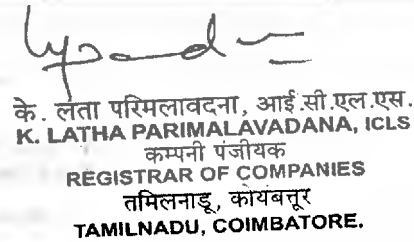 के. लता परिमलावदना, आई.सी.एल.एस.
K. LATHA PARIMALAVADANA, ICLS
कम्पनी पंजीयक
REGISTRAR OF COMPANIES
तमिलनाडू, कोयंबत्तूर
TAMILNADU, COIMBATORE.